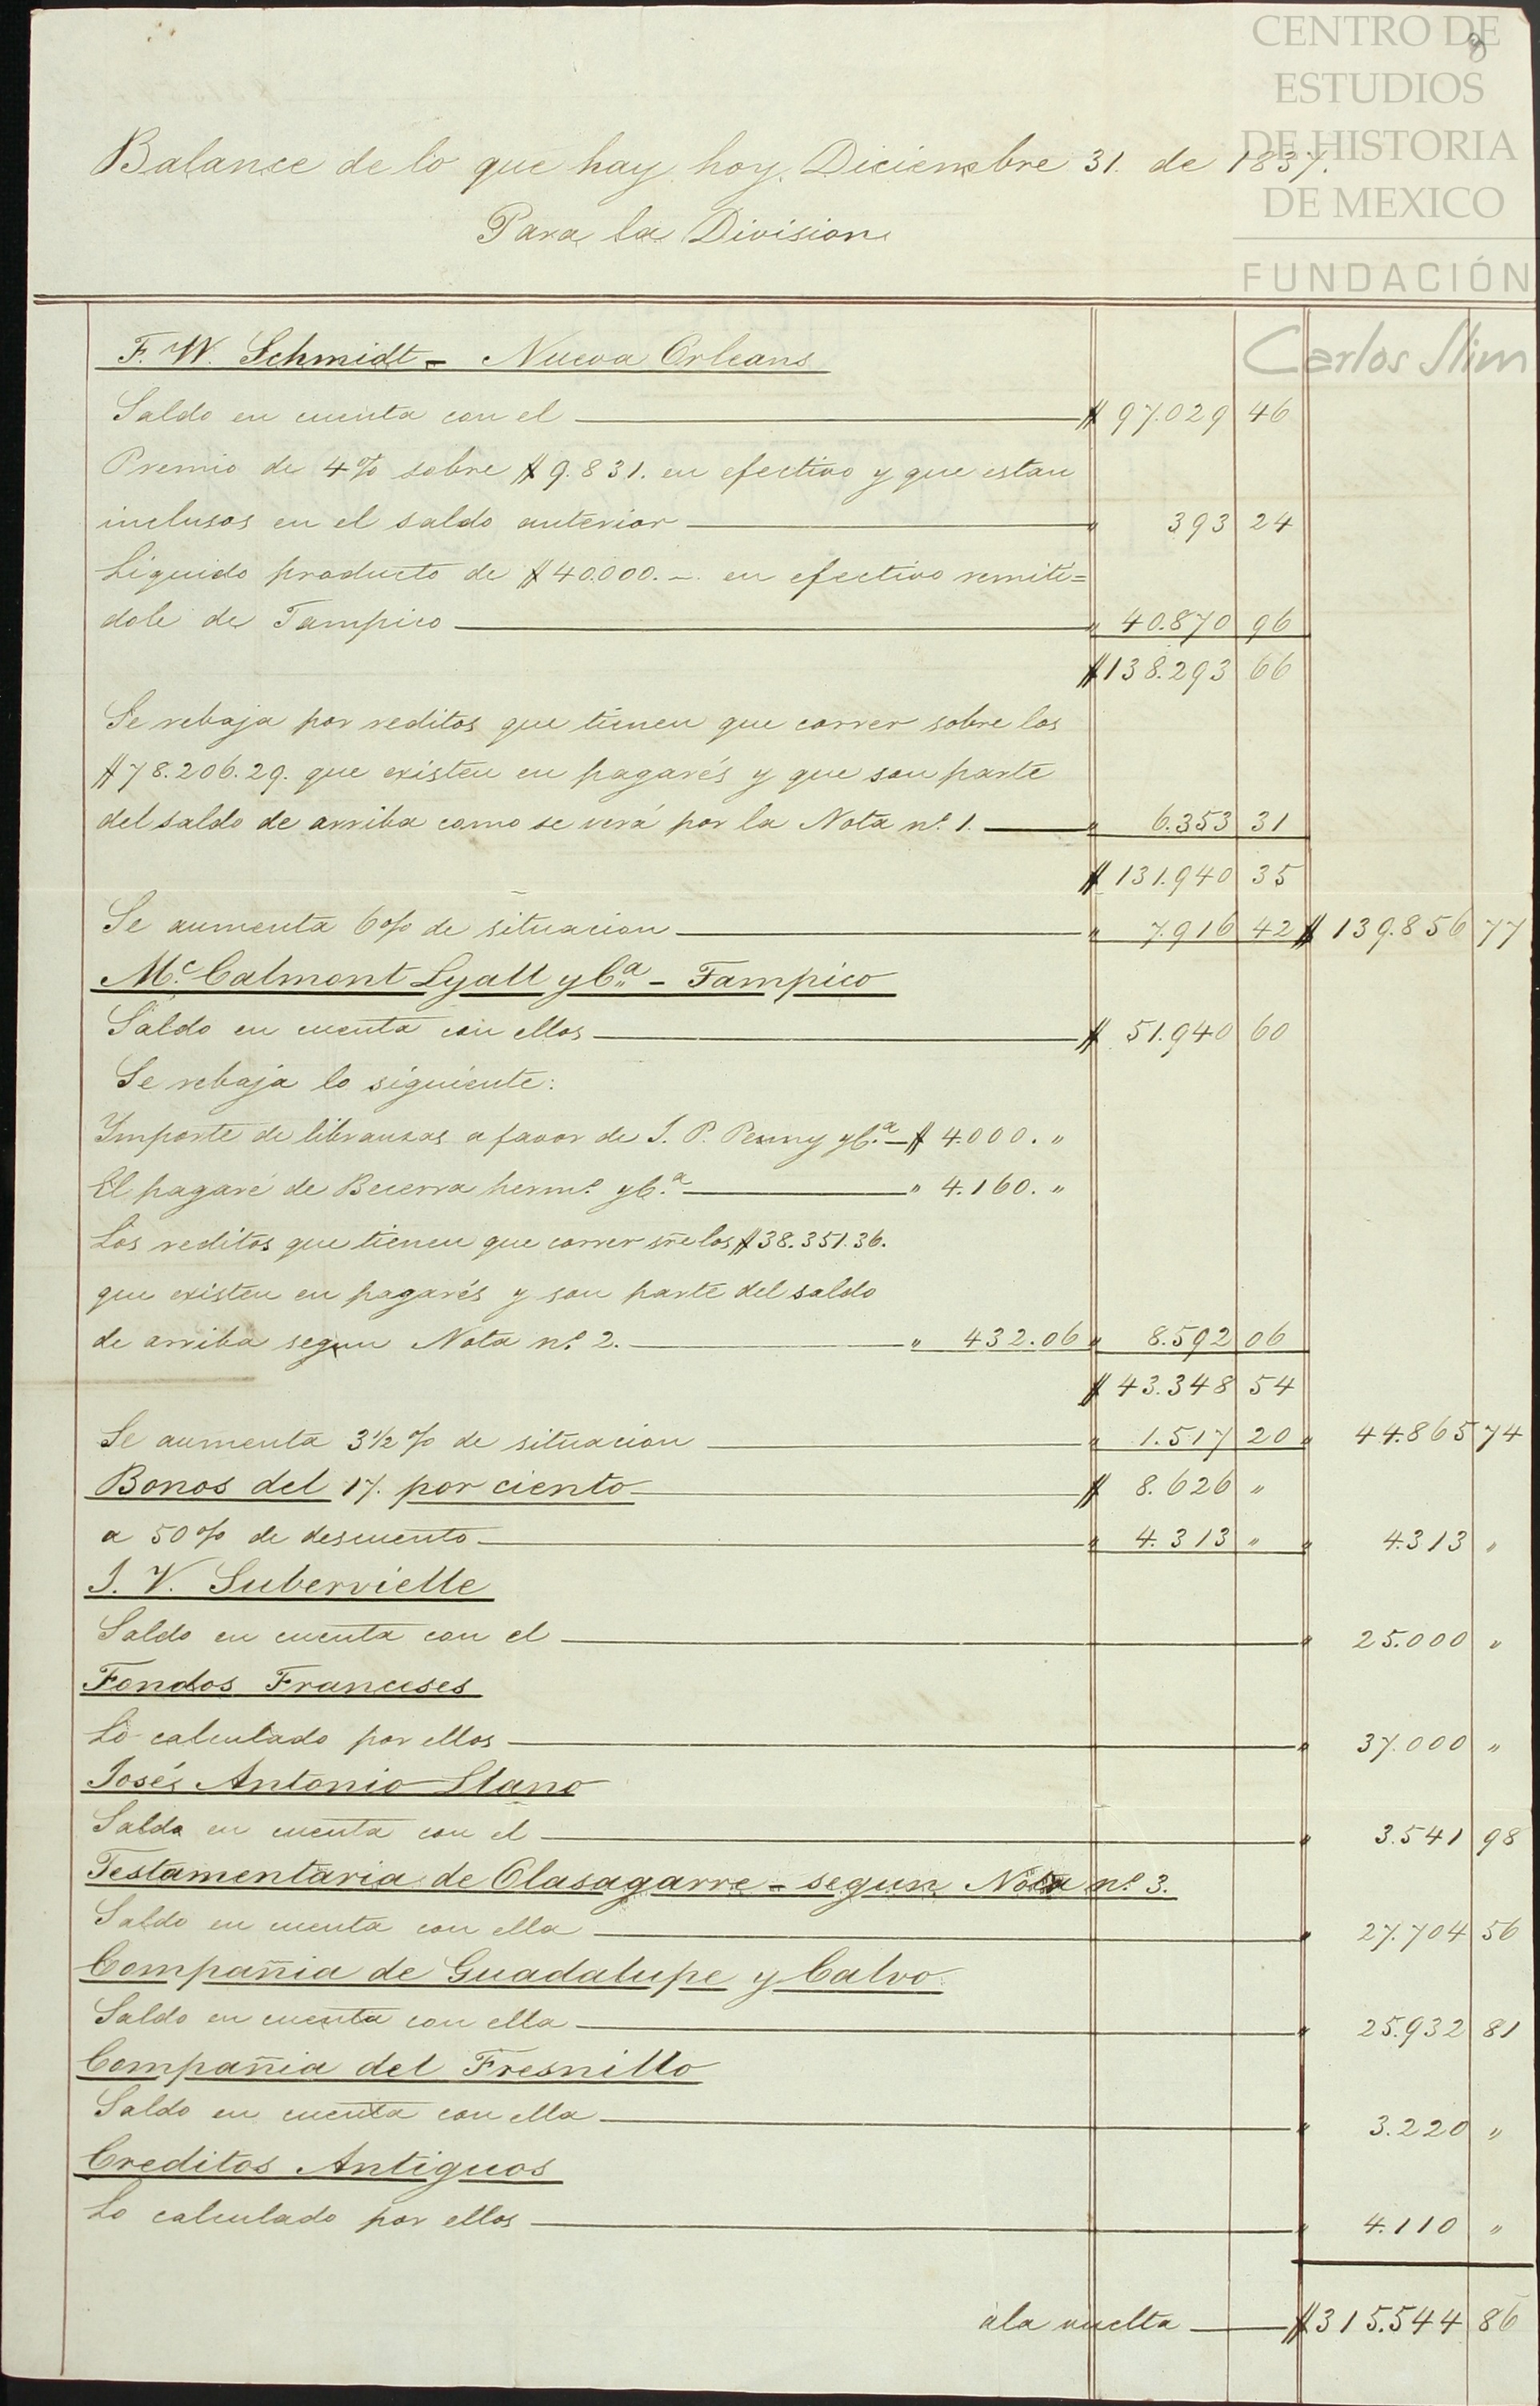 CENTRO DE
ESTUDIOS
DE HISTORIA
DE MEXICO
FUNDACIÓN
Carlos Slim
8
Balance de lo que hay hoy, Diciembre 31. de 1837.
Para la Division
F. W. Schmidt - Nueva Orleans
Saldo en cuenta con el $ 97.029 46
Premio de 4% sobre $ 9.831. en efectivo y que estan
inclusos en el saldo anterior " 393 24
Liquido producto de $ 40.000. - en efectivo remiti=
dole de Tampico " 40.870 96
$ 138.293 66
Se rebaja por reditos que tienen que correr sobre los
$ 78.206.29. que existen en pagarés y que son parte
del saldo de arriba como se verá por la Nota nº 1. " 6.353 31
$ 131.940 35
Se aumenta 6% de situacion " 7.916 42 $ 139.856 77
Mc. Calmont Lyall y Cª - Tampico
Saldo en cuenta con ellos $ 51.940 60
Se rebaja lo siguiente:
Importe de libranzas a favor de J. P. Penny y Cª - $ 4.000. "
El pagaré de Becerra hermº y Cª " 4.160. "
Los reditos que tienen que correr sre los $ 38.351.36.
que existen en pagarés y son parte del saldo
de arriba segun Nota nº 2. " 432.06 " 8.592 06
$ 43.348 54
Se aumenta 3½% de situacion " 1.517 20 " 44.865 74
Bonos del 17. por ciento $ 8.626 "
a 50% de descuento " 4.313 " " 4.313 "
J. V. Subervielle
Saldo en cuenta con el " 25.000 "
Fondos Franceses
Lo calculado por ellos " 37.000 "
José Antonio Llano
Saldo en cuenta con el " 3.541 98
Testamentaria de Olasagarre - segun Nota nº 3.
Saldo en cuenta con ella " 27.704 56
Compañia de Guadalupe y Calvo.
Saldo en cuenta con ella " 25.932 81
Compañia del Fresnillo
Saldo en cuenta con ella " 3.220 "
Creditos Antiguos
Lo calculado por ellos " 4.110 "
a la vuelta $ 315.544 86